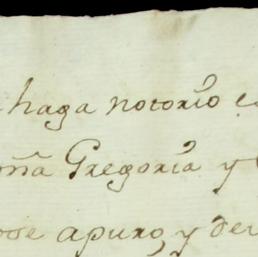 haga notorio
oña Gregoria y
apuro, y de